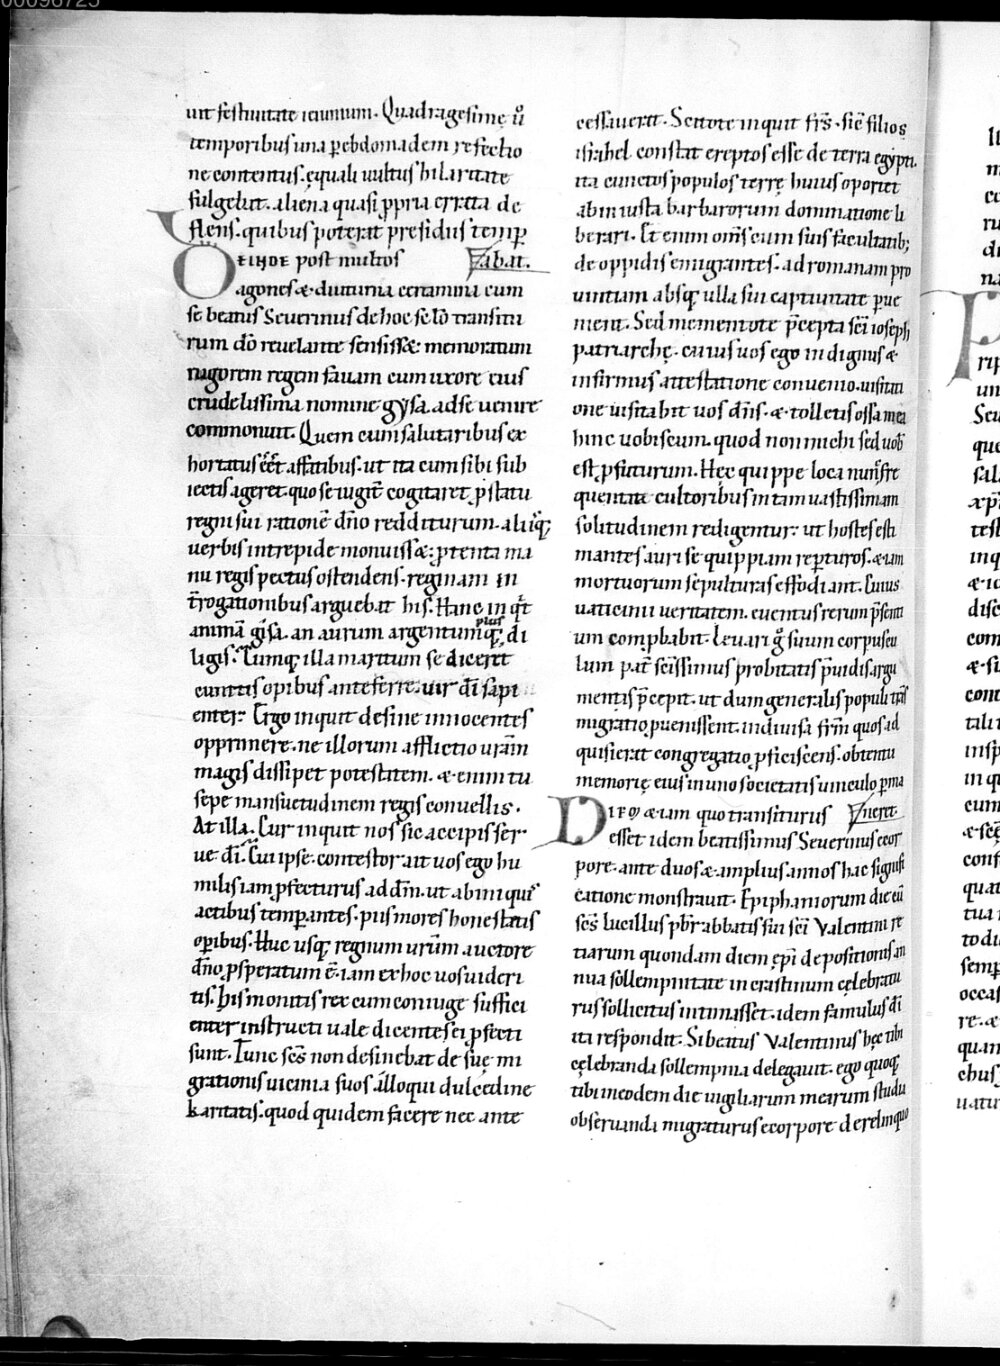 00096725
uit festiuitate ieiunium. Quadragesimę ů
temporibus una p̱ ebdomadem refectio
ne contentus. ęquali uultus hilaritate
fulgebat. aliena quasi ꝓpria errata de
flens. quibus poterat presidiis temꝑ
Deinde post multos abat.
agones &. diuturna certamina cum
se beatus Seuerinus de hoc sc̄lo transitu
rum dō reuelante sensiss&. memoratum
rugorem regem fauam cum uxore eius
crudelissima nomine gysa. ad se uenire
commonuit. Quem cum salutaribus ex
hortatus eēt affatibus. ut ita cum sibi sub
iectis ageret. quo se iugit̄ cogitaret ꝓ statu
regni sui rationē dn̄o redditurum. aliisq;
uerbis intrepide monuiss&. ꝓtenta ma
nu regis pectus ostendens. reginam in
t̄rogationibus arguebat his. Hanc inq̄t
animā gisa. an aurum argentumq; plus di
ligis. Cumq; illa maritum se diceret
cunctis opibus anteferre. uir dī sapi
enter. Ergo inquit desine innocentes
opprimere. ne illorum afflictio uram̄
magis dissipet potestatem. &enim tu
sepe mansuetudinem regis conuellis.
At illa. Cur inquit nos sic accipis ser
ue dī. Cui ipse. contestor ait uos ego hu
milis iam ꝓfecturus ad dm̄. ut ab iniquis
actibus temꝑantes. piis mores honestatis
oꝑibus. Huc usq; regnum urūm auctore
dn̄o ꝓsperatum ē. iam ex hoc uos uideri
tis. his monitis rex cum coniuge suffici
enter instructi uale dicentes ei ꝓfecti
sunt. Tunc sc̄s non desinebat de suę mi
grationis uicinia suos alloqui dulcedine
karitatis. quod quidem facere nec ante
cessauerat. Scitote inquit fr̄s. sic̄ filios
israhel constat ereptos esse de terra egypti.
ita cunctos populos terrę huius oportet
ab iniusta barbarorum dominatione li
berari. Et enim om̄s cum suis facultatib;
de oppidis emigrantes. ad romanam pro
uintiam absq; ulla sui captiuitate ꝑue
nient. Sed mementote p̄cepta sc̄i ioseph
patriarchę. cuius uos ego indignus &
infirmus attestatione conuenio. uisitati
one uisitabit uos dn̄s. & tolletis ossa mea
hinc uobiscum. quod non michi sed uob̄
est ꝓfuturum. Hęc quippe loca nunc̄ fre
quentata cultoribus in tam uastissimam
solitudinem redigentur. ut hostes esti
mantes auri se quippiam reꝑturos. &iam
mortuorum sepulturas effodiant. Cuius
uaticinii ueritatem. euentus rerum p̄senti
um comꝓbabit. leuari g̊ suum corpuscu
lum pat̄ sc̄issimus probitatis ꝓuidis argu
mentis p̄cepit. ut dum generalis populi tn̄s
migratio ꝓuenissent. indiuisa fr̄m quos ad
quisierat congregatio ꝓficiscens. obtentu
memorię eius in uno societatis uinculo ꝑma
Diem &iam quo transiturus neret.
esset idem beatissimus Seuerinus e cor
pore. ante duos & amplius annos hac signifi
catione monstrauit. Epiphaniorum die cū
sc̄s lucillus pbr̄ abbatis sui sc̄i Valentini re
tiarum quondam diem ep̄i depositionis an
nua sollempnitate in crastinum cęlebratu
rus sollicitus intimasset. idem famulus dī
ita respondit. Si beatus Valentinus hęc tibi
cęlebranda sollempnia delegauit. ego quoq;
tibi in eodem die uigiliarum mearum studia
obseruanda migraturus e corpore derelinquo